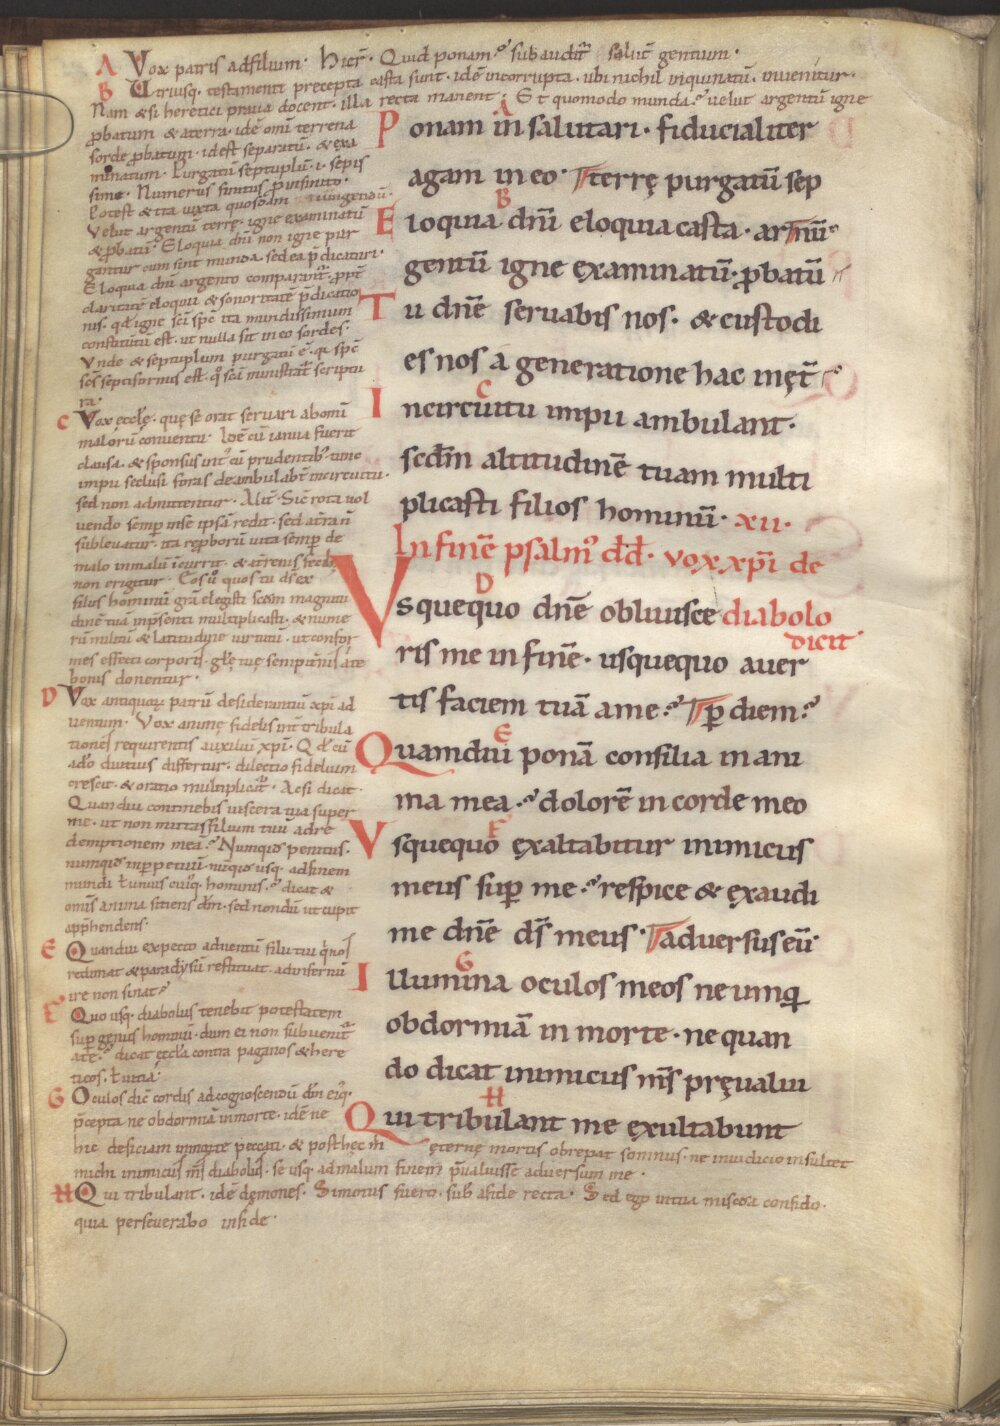 A Vox patris ad filium. Hier̄. Quid ponam? subaudit̄ salut̄ gentium.
B Utriusq; testamenti precepta casta sunt. idē incorrupta. ubi nichil inquinatū. invenitur.
Nam & si heretici praua docent. illa recta manent. Et quomodo munda? velut argentū igne
p̄batum & a terra. idē omi terrena
sorde p̄batum. id est separatū. & exa
minatum. Purgatū septuplū. i. sepis
sime. Numerus finitus p̄ infinito.
Potest & ita iuxta quosdam iungendū.
Velut argentū terrę. igne examinatū
& p̄batū. Eloquia dn̄i non igne pur
gantur cum sint munda. sed ea p̄dicatur.
Eloquia dn̄i argento comparant̄. pp̄t
claritatē eloquii & sonoritatē p̄dicatio
nis. qd̄ igne sc̄i sp̄c ita mundissimum
constitutū est. ut nulla sit in eo sordes.
Vnde & septuplum purgatū ē. qi sp̄c
sc̄s septiformis est. q̄ sc̄ā ministrat̄ scriptu
ra.
C Vox ęccl̄ę. quę se orat seruari ab omī
malorū conuentu. Idē cū ianua fuerit
clausa. & sponsus intr̄ cū prudentib; tunc
impii seclusi foras deambulabt̄ in circuitu.
sed non admittentur. Alit̄. Sic̄ rota uol
uendo semp̄ in se ipsā redit. sed a t̄ra n̄
subleuatur. ita rep̄borū uita semp̄ de
malo in malū incurrit. & a t̄renis
non erigitur. Eos u͛ quos tu ds̄ ex
filiis hominū gr̄a elegisti scdm̄ magnitu
dinē tuā in p̄senti multiplicasti. & nume
rū multū & latitudine uirtutū. ut confor
mes effecti corporis. gl̄ę tuę sempit̄nis a te
bonis donentur.
D Vox antiquaꝝ patrū desiderantiū xp̄i ad
uentum. Vox animę fidelis int̄ tribula
tiones requirentis auxiliū xp̄i. Qd̄ cū
adeo diutius differtur. dilectio fidelium
crescit. & oratio multiplicat̄. Ac si dicat.
Quandiu continebis uiscera tua super
me. ut non mittas filium tuū ad re
demptionem meā? Numquid penitus.
numquid in p̄petuum. usq; ad finem
mundi l̄ unius cuiq; hominis? dicat &
omīs anima sitiens dm̄. sed nondū ut cupit
app̄hendens.
E Quandiu expecto aduentū filii tui q̄ nos
redimat & paradysū restituat. ad infernū
ire non sinat?
F Quo usq; diabolus tenebit potestatem
sup̄ genus hominū. dum ei non subuenit̄
a te? dicat ęccl̄a contra paganos & here
ticos. l̄ uitia.
G Oculos dic̄ cordis ad cognoscendū dm̄ eiq;
p̄cepta ne obdormiā in morte. idē ne
hic deficiam in morte peccati. & post hęc in ęternę mortis obrepat somnus. ne in iudicio insultet
michi inimicus ms̄ diabolus. se usq; ad malum finem p̄ualuisse aduersum me.
H Qui tribulant. idē dęmones. Si motus fuero. sub̄ a fide recta. Sed ego in tua mis̄cdia confido.
quia perseuerabo in fide.
A
Ponam in salutari. fiducialiter
agam in eo. terrę purgatū sep
B
Eloquia dn̄i eloquia casta. ar tuū
gentū igne exạminatū. p̄batū
Tu dn̄e seruabis nos. & custodi
es nos a generatione hac in ęt̄
C
In circuitu impii ambulant.
scdm̄ altitudinē tuam multi
plicasti filios hominū. XII.
In finē psalm̄ dd̄. vox xp̄i de
D
Vsquequo dn̄e obliuisce diabolo
dicit
ris me in finē. usquequo auer
tis faciem tuā a me? p̄ diem?
E
Quamdiu ponā consilia in ani
ma mea? dolorē in corde meo
F
Vsquequo exaltabitur inimicus
meus sup̄ me? respice & exaudi
me dn̄e ds̄ meus. aduersus eū.
G
Illumina oculos meos ne umq̄
obdormiā in morte. ne quan
do dicat inimicus ms̄ pręualui
H
Qui tribulant me exultabunt